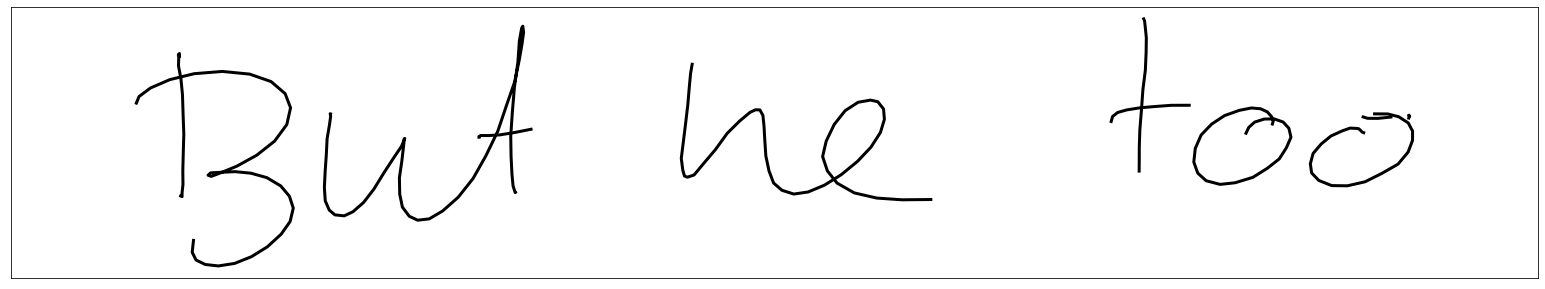 But he too